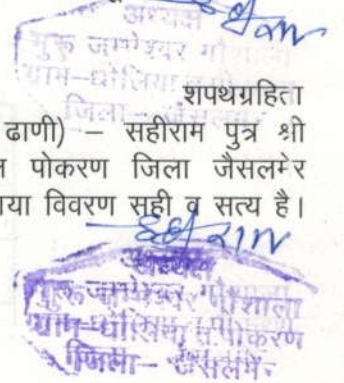 अध्यक्ष
गुरू जम्भेश्वर गौशाला
ग्राम-धोलिया त.पोकरण
जिला-जैसलमेर
शपथग्रहिता
ढाणी) – सहीराम पुत्र श्री
पोकरण जिला जैसलमेर
या विवरण सही व सत्य है।
अध्यक्ष
गुरू जम्भेश्वर गौशाला
ग्राम-धोलिया त.पोकरण
जिला-जैसलमेर